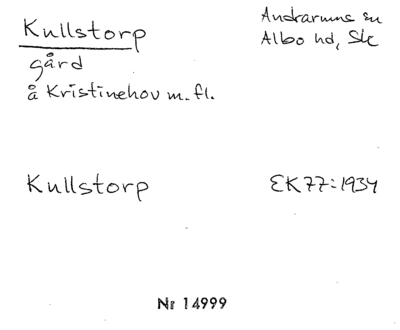 Kullstorp
Andrarums sn
Albo hd, Sk
gård
å Kristinehov m.fl.
Kullstorp
EK77:1934
Nr 14999